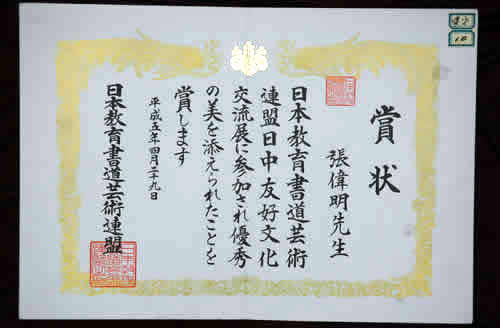 賞状
張偉明先生
日本教育書道芸術
連盟日中友好文化
交流展に参加され優秀
の美を添えられたことを
賞します
平成五年四月二十九日
日本教育書道芸術連盟